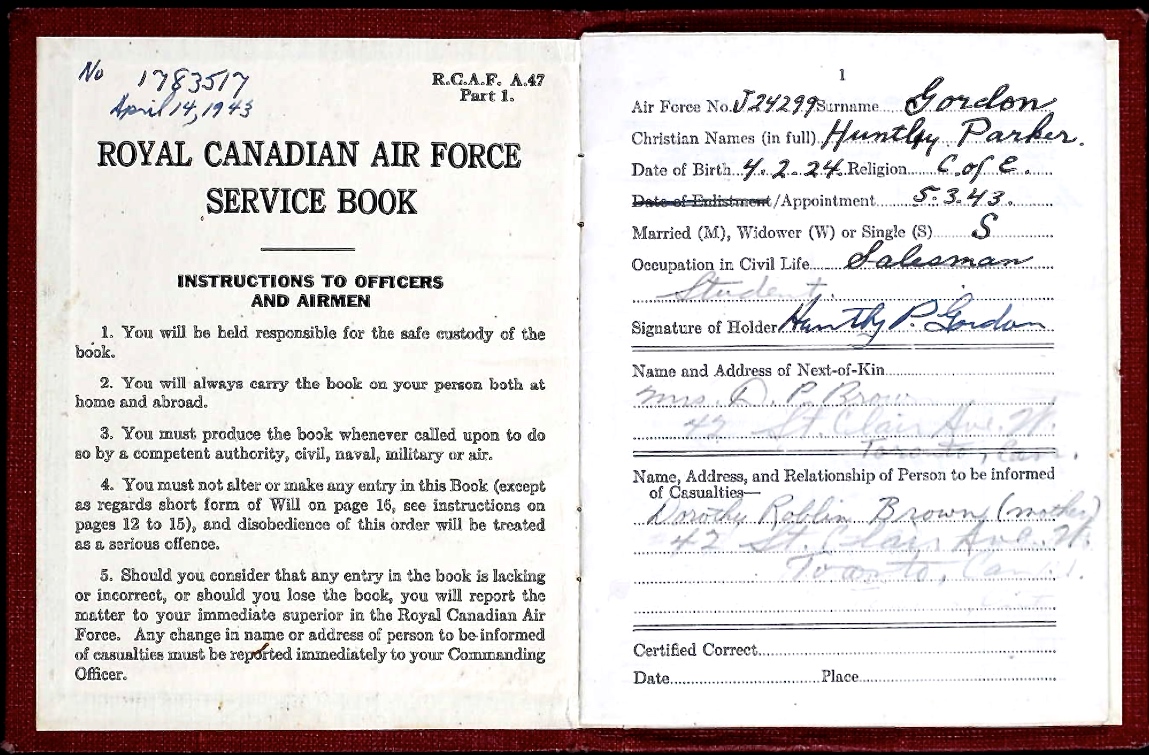 No 1783517
April 14, 1943
R.C.A.F. A.47
Part 1.
ROYAL CANADIAN AIR FORCE
SERVICE BOOK
INSTRUCTIONS TO OFFICERS
AND AIRMEN
1. You will be held responsible for the safe custody of the
book.
2. You will always carry the book on your person both at
home and abroad.
3. You must produce the book whenever called upon to do
so by a competent authority, civil, naval, military or air.
4. You must not alter or make any entry in this Book (except
as regards short form of Will on page 16, see instructions on
pages 12 to 15), and disobedience of this order will be treated
as a serious offence.
5. Should you consider that any entry in the book is lacking
or incorrect, or should you lose the book, you will report the
matter to your immediate superior in the Royal Canadian Air
Force. Any change in name or address of person to be informed
of casualties must be reported immediately to your Commanding
Officer.
1
Air Force No. J24299 Surname Gordon
Christian Names (in full) Huntley Parker.
Date of Birth 4.2.24 Religion C. of E.
Date of Enlistment/Appointment 5.3.43.
Married (M), Widower (W) or Single (S) S
Occupation in Civil Life Salesman
Student.
Signature of Holder Huntly P. Gordon
Name and Address of Next-of-Kin
Mrs. D. P. Brown
42 St. Clair Ave. W.
Toronto, Can.
Name, Address, and Relationship of Person to be informed
of Casualties—
Dorothy Roblin Brown (mother)
42 St. Clair Ave. W.
Toronto, Can.
Certified Correct
Date Place